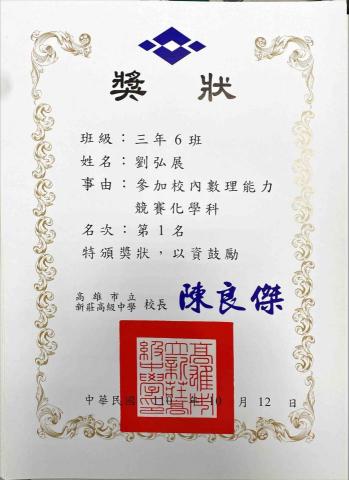 獎狀
班級：三年6班
姓名：劉弘展
事由：參加校內數理能力
競賽化學科
名次：第1名
特頒獎狀，以資鼓勵
高雄市立
新莊高級中學 校長 陳良傑
高雄市立新莊高級中學印
中華民國 110 年 10 月 12 日